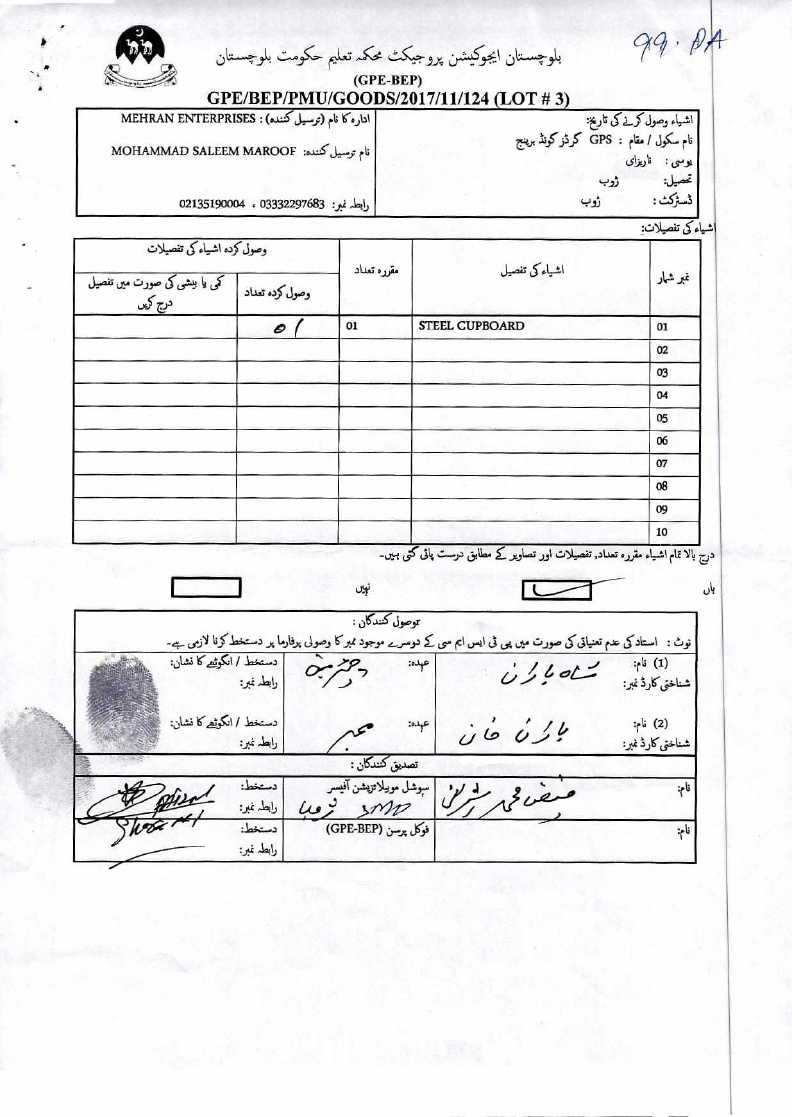 99. DA
بلوچستان ایجوکیشن پروجیکٹ محکمہ تعلیم حکومت بلوچستان
(GPE-BEP)
GPE/BEP/PMU/GOODS/2017/11/124 (LOT # 3)
اشیاء وصول کرنے کی تاریخ:
نام سکول / مقام : GPS گرلز گونڈ برینج
یوسی : ناریزای
تحصیل: ژوب
ڈسٹرکٹ : ژوب
ادارہ کا نام (ترسیل کنندہ) : MEHRAN ENTERPRISES
نام ترسیل کنندہ: MOHAMMAD SALEEM MAROOF
رابطہ نمبر: 03332297683 ، 02135190004
اشیاء کی تفصیلات:
نمبر شمار اشیاء کی تفصیل مقررہ تعداد وصول کردہ اشیاء کی تفصیلات
وصول کردہ تعداد کمی یا بیشی کی صورت میں تفصیل درج کریں
01 STEEL CUPBOARD 01 01
02
03
04
05
06
07
08
09
10
درج بالا تمام اشیاء مقررہ تعداد, تفصیلات اور تصاویر کے مطابق درست پائی گئی ہیں۔
ہاں نہیں
وصول کنندگان :
نوٹ : استاد کی عدم تعنیاتی کی صورت میں پی ٹی ایس ایم سی کے دوسرے موجود ممبر کا وصولی پرفارما پر دستخط کرنا لازمی ہے۔
(1) نام: شاہ باران عہدہ: چئرمین دستخط / انگوٹھے کا نشان:
شناختی کارڈ نمبر: رابطہ نمبر:
(2) نام: باران خان عہدہ: ممبر دستخط / انگوٹھے کا نشان:
شناختی کارڈ نمبر: رابطہ نمبر:
تصدیق کنندگان :
نام: فیض محمد سوشل موبیلائزیشن آفیسر دستخط:
رابطہ نمبر:
نام: فوکل پرسن (GPE-BEP) دستخط:
رابطہ نمبر: